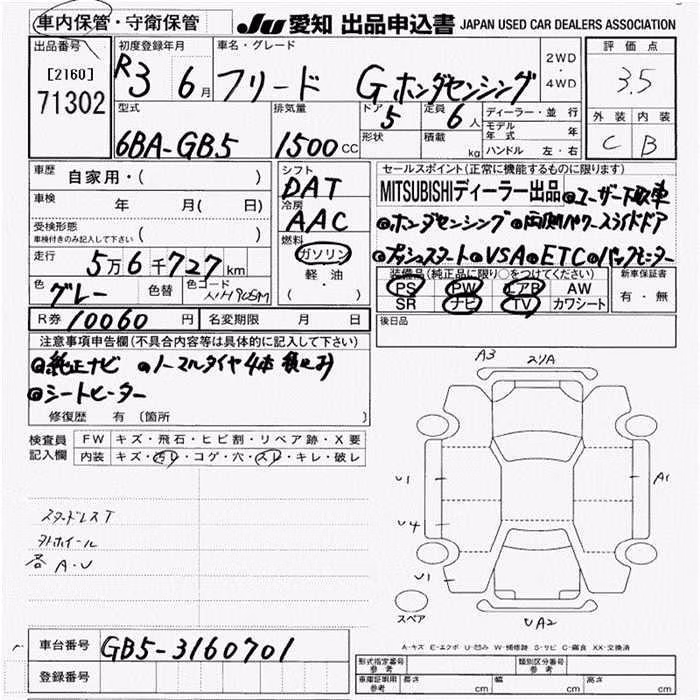 車内保管・守衛保管
JU 愛知 出品申込書 JAPAN USED CAR DEALERS ASSOCIATION
出品番号
[2160]
71302
初度登録年月
R3 6月
車名・グレード
フリード Gホンダセンシング
2WD
・
4WD
評価点
3.5
外装 内装
C B
型式
6BA-GB5
排気量
1500 CC
ドア
5
定員
6人
形状
積載
kg
ディーラー・並行
モデル年式 年
ハンドル 左・右
車歴
自家用・( )
車検
年 月( 日)
受検形態
車検付きのみ記入して下さい
( )
走行
5万6千727km
色
グレー
色替
色コード
R券 10060 円
名変期限 月 日
シフト
DAT
冷房
AAC
燃料
ガソリン
軽油
( ・ )
セールスポイント(正常に機能するものに限ります)
MITSUBISHIディーラー出品 ◎ユーザー下取車
◎ホンダセンシング ◎両側パワースライドドア
◎プッシュスタート ◎VSA ◎ETC ◎バックモニター
装備品(純正品に限り○をつけてください)
PS PW エアB AW
SR ナビ TV カワシート
新車保証書
有・無
後日品
注意事項申告欄(不具合内容等は具体的に記入して下さい)
◎純正ナビ ◎ノーマルタイヤ4本積込み
◎シートヒーター
修復歴 有 〔箇所 〕
検査員
記入欄
FW キズ・飛石・ヒビ割・リペア跡・X要
内装 キズ・汚レ・コゲ・穴・スレ・キレ・破レ
スタッドレスT
外ホイール
各 A・U
A3
2リA
U1
A1
U4
U1
UA2
スペア
A-キズ E-エクボ U-凹み W-補修跡 S-サビ C-腐食 XX-交換済
車台番号
GB5-3160701
登録番号
形式指定番号
参考
類別区分番号
参考
車庫証明用
参考
長さ cm
幅 cm
高さ cm